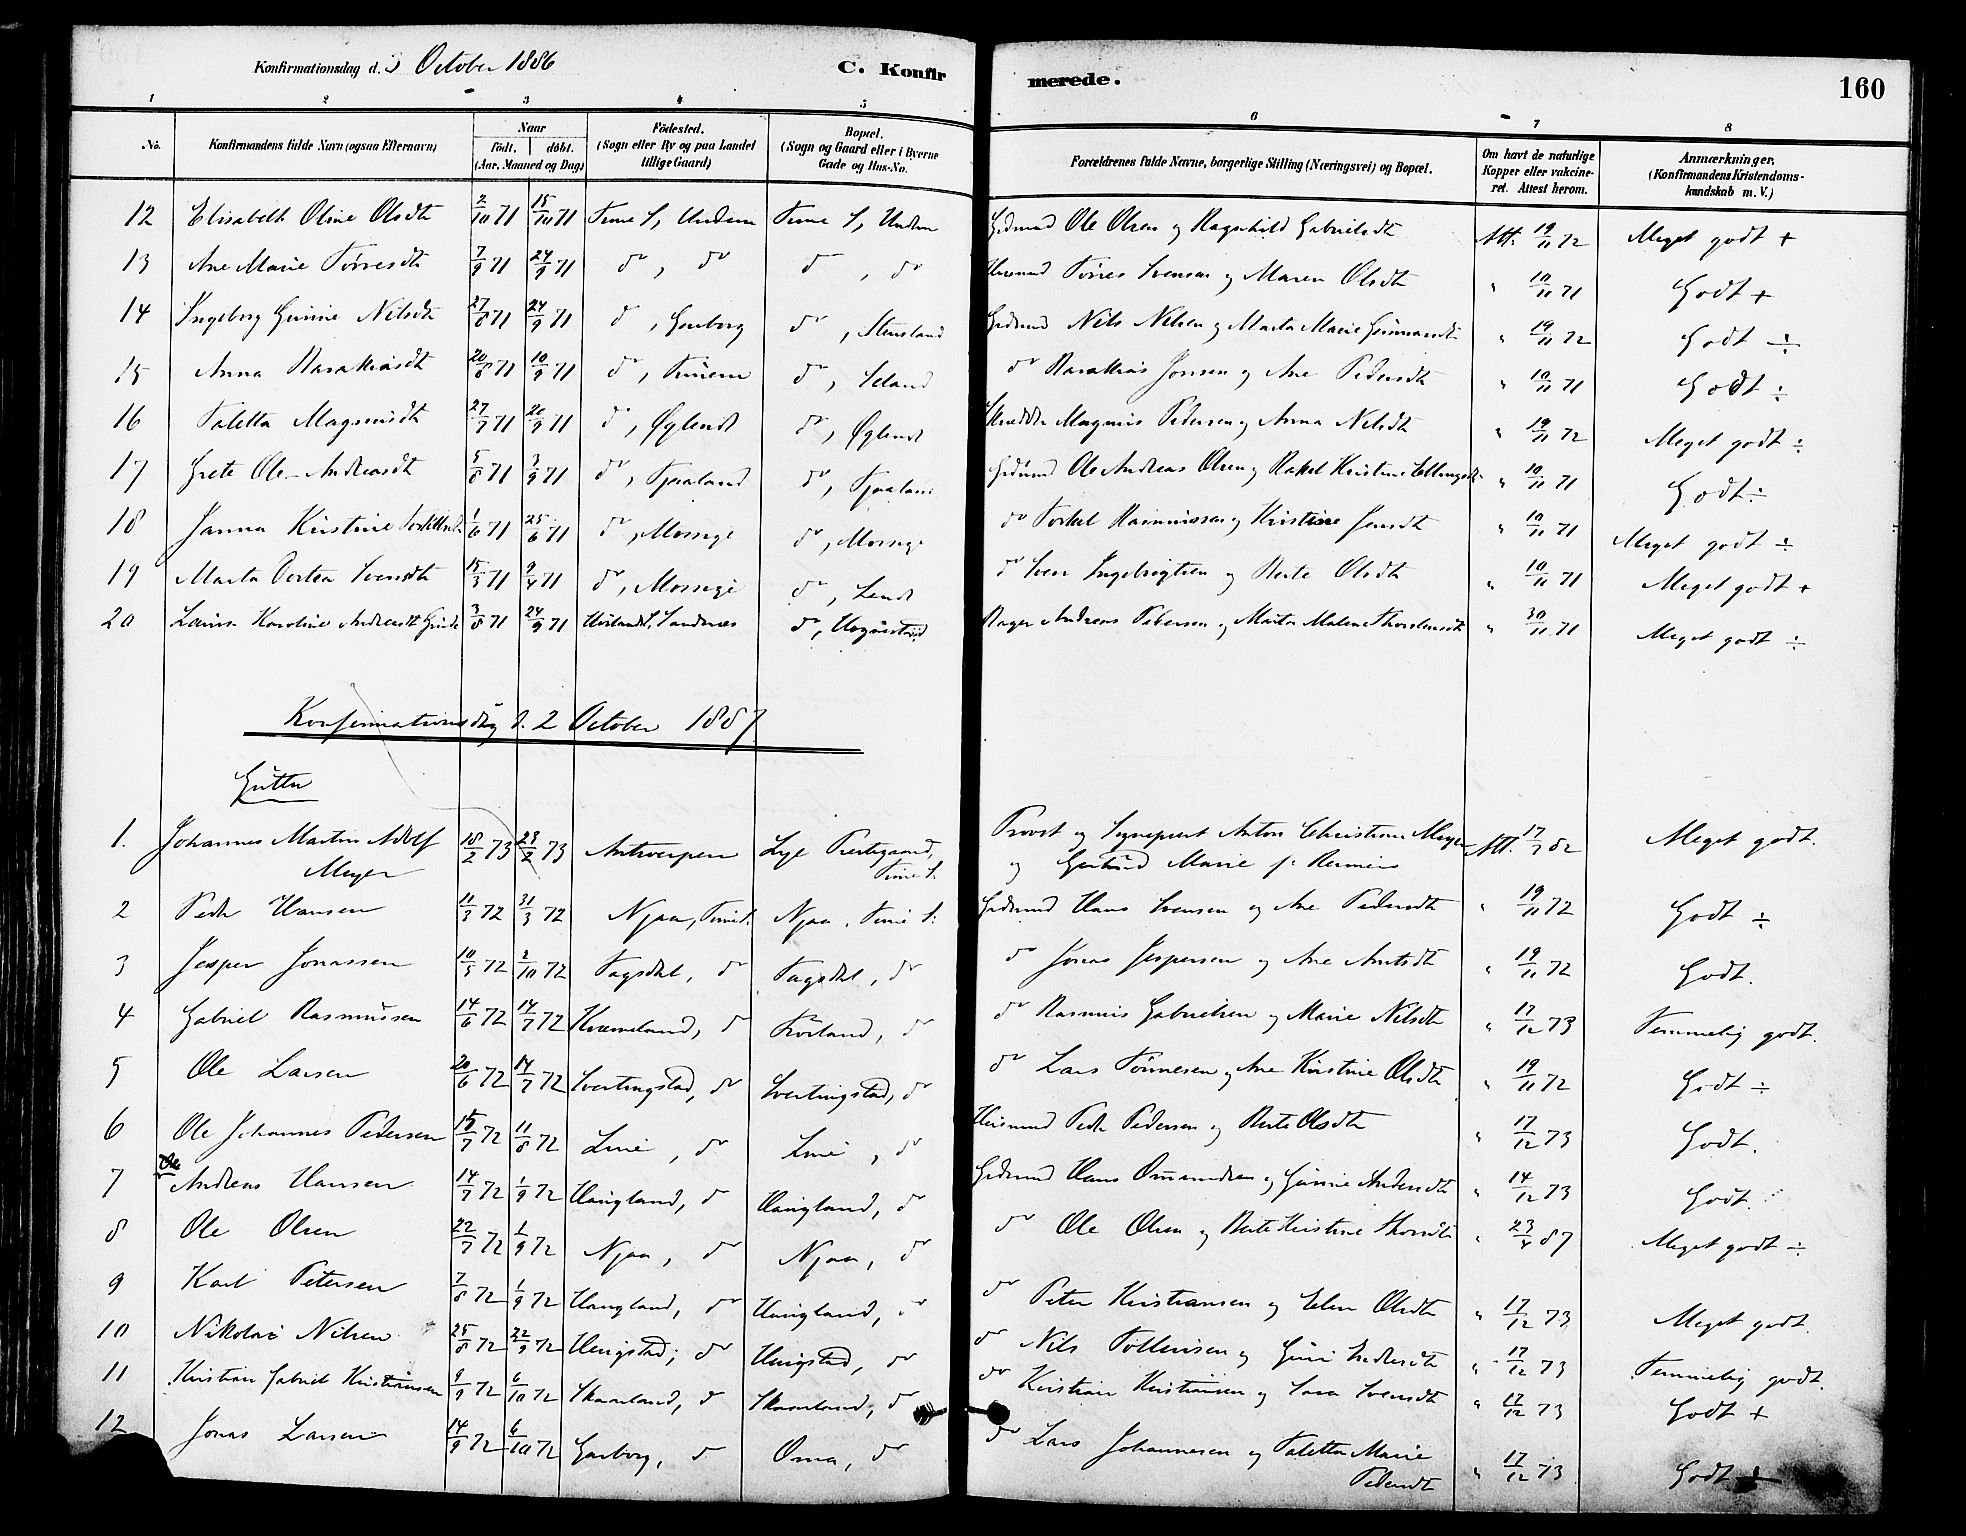 Konfirmationsdag d. 3 October 1886
C. Konfir
merede.
160
1 2 3 4 5 6 7 8
No.
Konfirmandens fulde Navn (ogsaa Efternavn)
Naar
födt. döbt.
(Aar, Maaned og Dag)
Födested.
(Sogn eller By og paa Landet
tillige Gaard)
Bopæl.
(Sogn og Gaard eller i Byerne
Gade og Hus-No.
Forældrenes fulde Navne, borgerlige Stilling (Næringsvei) og Bopæl.
Om havt de naturlige
Kopper eller vakcine-
ret. Attest herom.
Anmærkninger.
(Konfirmandens Kristendoms-
kundskab m. V.)
12 Elisabeth Oline Olsdt 2/10 71 15/10 71 Time S, Undem Time S, Undem Grdmand Ole Olsen og Ragnhild Gabrielsdt Att. 19/11 72 Meget godt +
13 Ane Marie Tørresdt 7/9 71 24/9 71 do, do do, do Huusmand Tørres Svensen og Maren Olsdt " 10/11 71 Godt +
14 Ingeborg Gurine Nilsdt 27/8 71 24/9 71 do, Garborg do, Stensland Grdmand Nils Nilsen og Marta Marie Gunnarsdt " 19/11 72 Godt ÷
15 Anna Barakiasdt 20/8 71 10/9 71 do, Timem do, Seland do Barakias Jonsen og Ane Pedersdt " 10/11 71 Godt ÷
16 Taletta Magnusdt 27/7 71 20/9 71 do, Øglend do, Øglend Magnus Pedersen og Anna Nilsdt " 19/11 72 Meget godt ÷
17 Grete Ole-Andreasdt 5/8 71 3/9 71 do, Tjaaland do, Tjaaland Grdmand Ole Andreas Olsen og Rakel Kristine Ellingsdt " 10/11 71 Godt ÷
18 Janna Kirstine Torkelsdt 1/6 71 25/6 71 do, Mossige do, Mossige do Torkel Rasmussen og Kristine Jensdt " 10/11 71 Meget godt ÷
19 Marta Dortea Svensdt 15/3 71 9/4 71 do, Mossige do, Lend do Sven Ingebrigtsen og Berte Olsdt " 10/11 71 Meget godt +
20 Lavisa Karoline Andreasdt Grude 3/8 71 24/9 71 Høiland S, Sandnes do, Haugstad Bager Andreas Pedersen og Marta Malene Thorstensdt " 30/11 71 Meget godt ÷
Konfirmationsdag d. 2 October 1887
Gutter
1. Johannes Martin Adolf 18/2 73 23/2 73 Antwerpen Lye Prestegaard, Provst og Sognepræst Anton Christian Meyer Att. 17/7 82 Meget godt.
Meyer Time S. og Gertrud Marie f.
2 Peder Hansen 11/3 72 31/3 72 Njaa, Time S. Njaa, Time S. Grdmand Hans Svensen og Ane Pedersdt " 19/11 72 Godt ÷
3 Jesper Jonassen 10/5 72 2/10 72 Fagsdal, do Fagsdal, do do Jonas Jespersen og Ane Arntsdt " 19/11 72 Godt.
4 Gabriel Rasmussen 14/6 72 14/7 72 Kverneland, do Frøiland, do do Rasmus Gabrielsen og Marie Nilsdt " 17/12 73 Temmelig godt.
5 Ole Larsen 20/6 72 14/7 72 Svertingstad, do Svertingstad, do do Lars Tønnesen og Ane Kirstine Olsdt " 19/11 72 Godt ÷
6 Ole Johannes Pedersen 15/7 72 11/8 72 Line, do Line, do Huusmand Peder Pedersen og Berte Olsdt " 17/12 73 Godt.
7 Ole Andreas Hansen 14/7 72 1/9 72 Haugland, do Haugland, do Grdmand Hans Omundsen og Gurine Andersdt " 14/12 73 Godt.
8 Ole Olsen 22/7 72 1/9 72 Njaa, do Njaa, do do Ole Olsen og Berte Kirstine Thorsdt " 23/4 87 Meget godt ÷
9 Karl Petersen 7/8 72 1/9 72 Haugland, do Haugland, do do Peter Kristiansen og Elen Olsdt " 17/12 73 Meget godt.
10 Nikolai Nilsen 25/8 72 22/9 72 Herigstad, do Herigstad, do do Nils Tollevsen og Guri " 17/12 73 Temmelig godt.
11 Kristian Gabriel Kristiansen 9/9 72 6/10 72 Skaarland, do Skaarland, do do Kristian Kristiansen og Sara Svensdt " 17/12 73 Godt +
12 Jonas Larsen 14/9 72 6/10 72 Garborg, do Oma, do do Lars Johannesen og Taletta Marie " 17/12 73 Godt ÷
Pedersdt